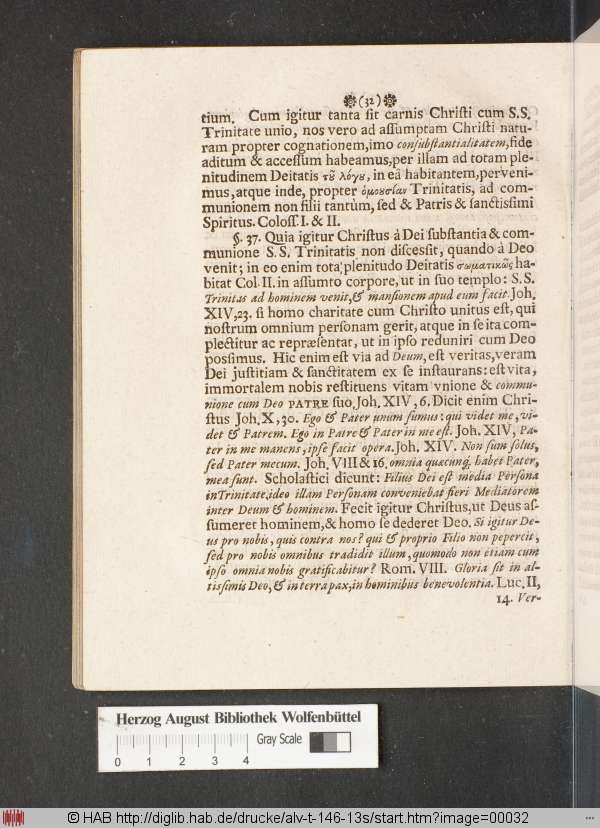 ❁(32)❁
tium. Cum igitur tanta sit carnis Christi cum S.S.
Trinitate unio, nos vero ad assumptam Christi natu-
ram propter cognationem, imo consubstantialitatem, fide
aditum & accessum habeamus, per illam ad totam ple-
nitudinem Deitatis τοῦ λόγου, in eâ habitantem, perveni-
mus, atque inde, propter ὁμουσίαν Trinitatis, ad com-
munionem non filii tantùm, sed & Patris & sanctissimi
Spiritus. Coloss. I. & II.
§. 37. Quia igitur Christus â Dei substantia & com-
munione S. S. Trinitatis non discessit, quando â Deo
venit; in eo enim tota plenitudo Deitatis σωματικῶς ha-
bitat Col II. in assumto corpore, ut in suo templo: S.S.
Trinitas ad hominem venit, & mansionem apud eum facit Joh.
XIV, 23. si homo charitate cum Christo unitus est, qui
nostrum omnium personam gerit, atque in se ita com-
plectitur ac repræsentat, ut in ipso reduniri cum Deo
possimus. Hic enim est via ad Deum, est veritas, veram
Dei justitiam & sanctitatem ex se instaurans: est vita,
immortalem nobis restituens vitam vnione & commu-
nione cum Deo PATRE suo Joh. XIV, 6. Dicit enim Chri-
stus Joh. X, 30. Ego & Pater unum sumus: qui videt me, vi-
det & Patrem. Ego in Patre & Pater in me est. Joh. XIV, Pa-
ter in me manens, ipse facit opera. Joh. XIV. Non sum solus,
sed Pater mecum. Joh. VIII & 16. omnia quæcunq; habet Pater,
mea sunt. Scholastici dicunt: Filius Dei est media Persona
in Trinitate, ideo illam Personam conveniebat fieri Mediatorem
inter Deum & hominem. Fecit igitur Christus, ut Deus as-
sumeret hominem, & homo se dederet Deo. Si igitur De-
us pro nobis, quis contra nos? qui & proprio Filio non pepercit,
sed pro nobis omnibus tradidit illum, quomodo non etiam cum
ipso omnia nobis gratificabitur? Rom. VIII. Gloria sit in al-
tissimis Deo, & in terra pax, in hominibus benevolentia. Luc. II,
14. Ver-
Herzog August Bibliothek Wolfenbüttel
0 1 2 3 4 Gray Scale
© HAB http://diglib.hab.de/drucke/alv-t-146-13s/start.htm?image=00032